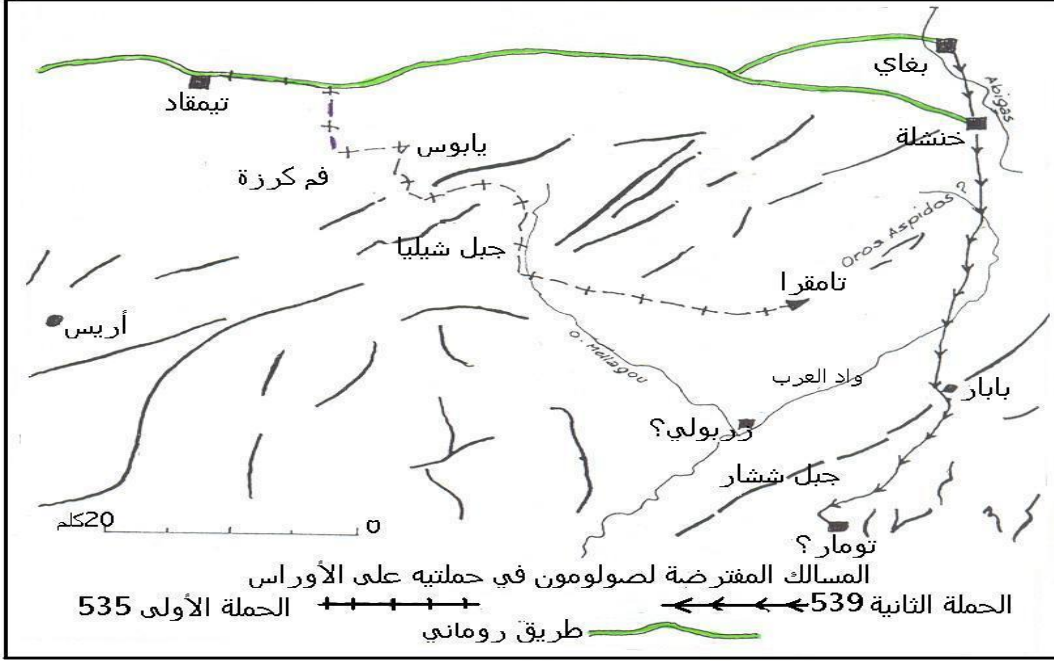 بغاي
Abigas
تيمقاد
خنشلة
يابوس
فم كرزة
Oros Aspidos ?
جبل شيليا
تامقرا
أريس
O. Mellagou
واد العرب
بابار
زربولي؟
جبل ششار
20كلم
0
تومار؟
المسالك المفترضة لصولومون في حملتيه على الأوراس
الحملة الثانية 539
الحملة الأولى 535
طريق روماني